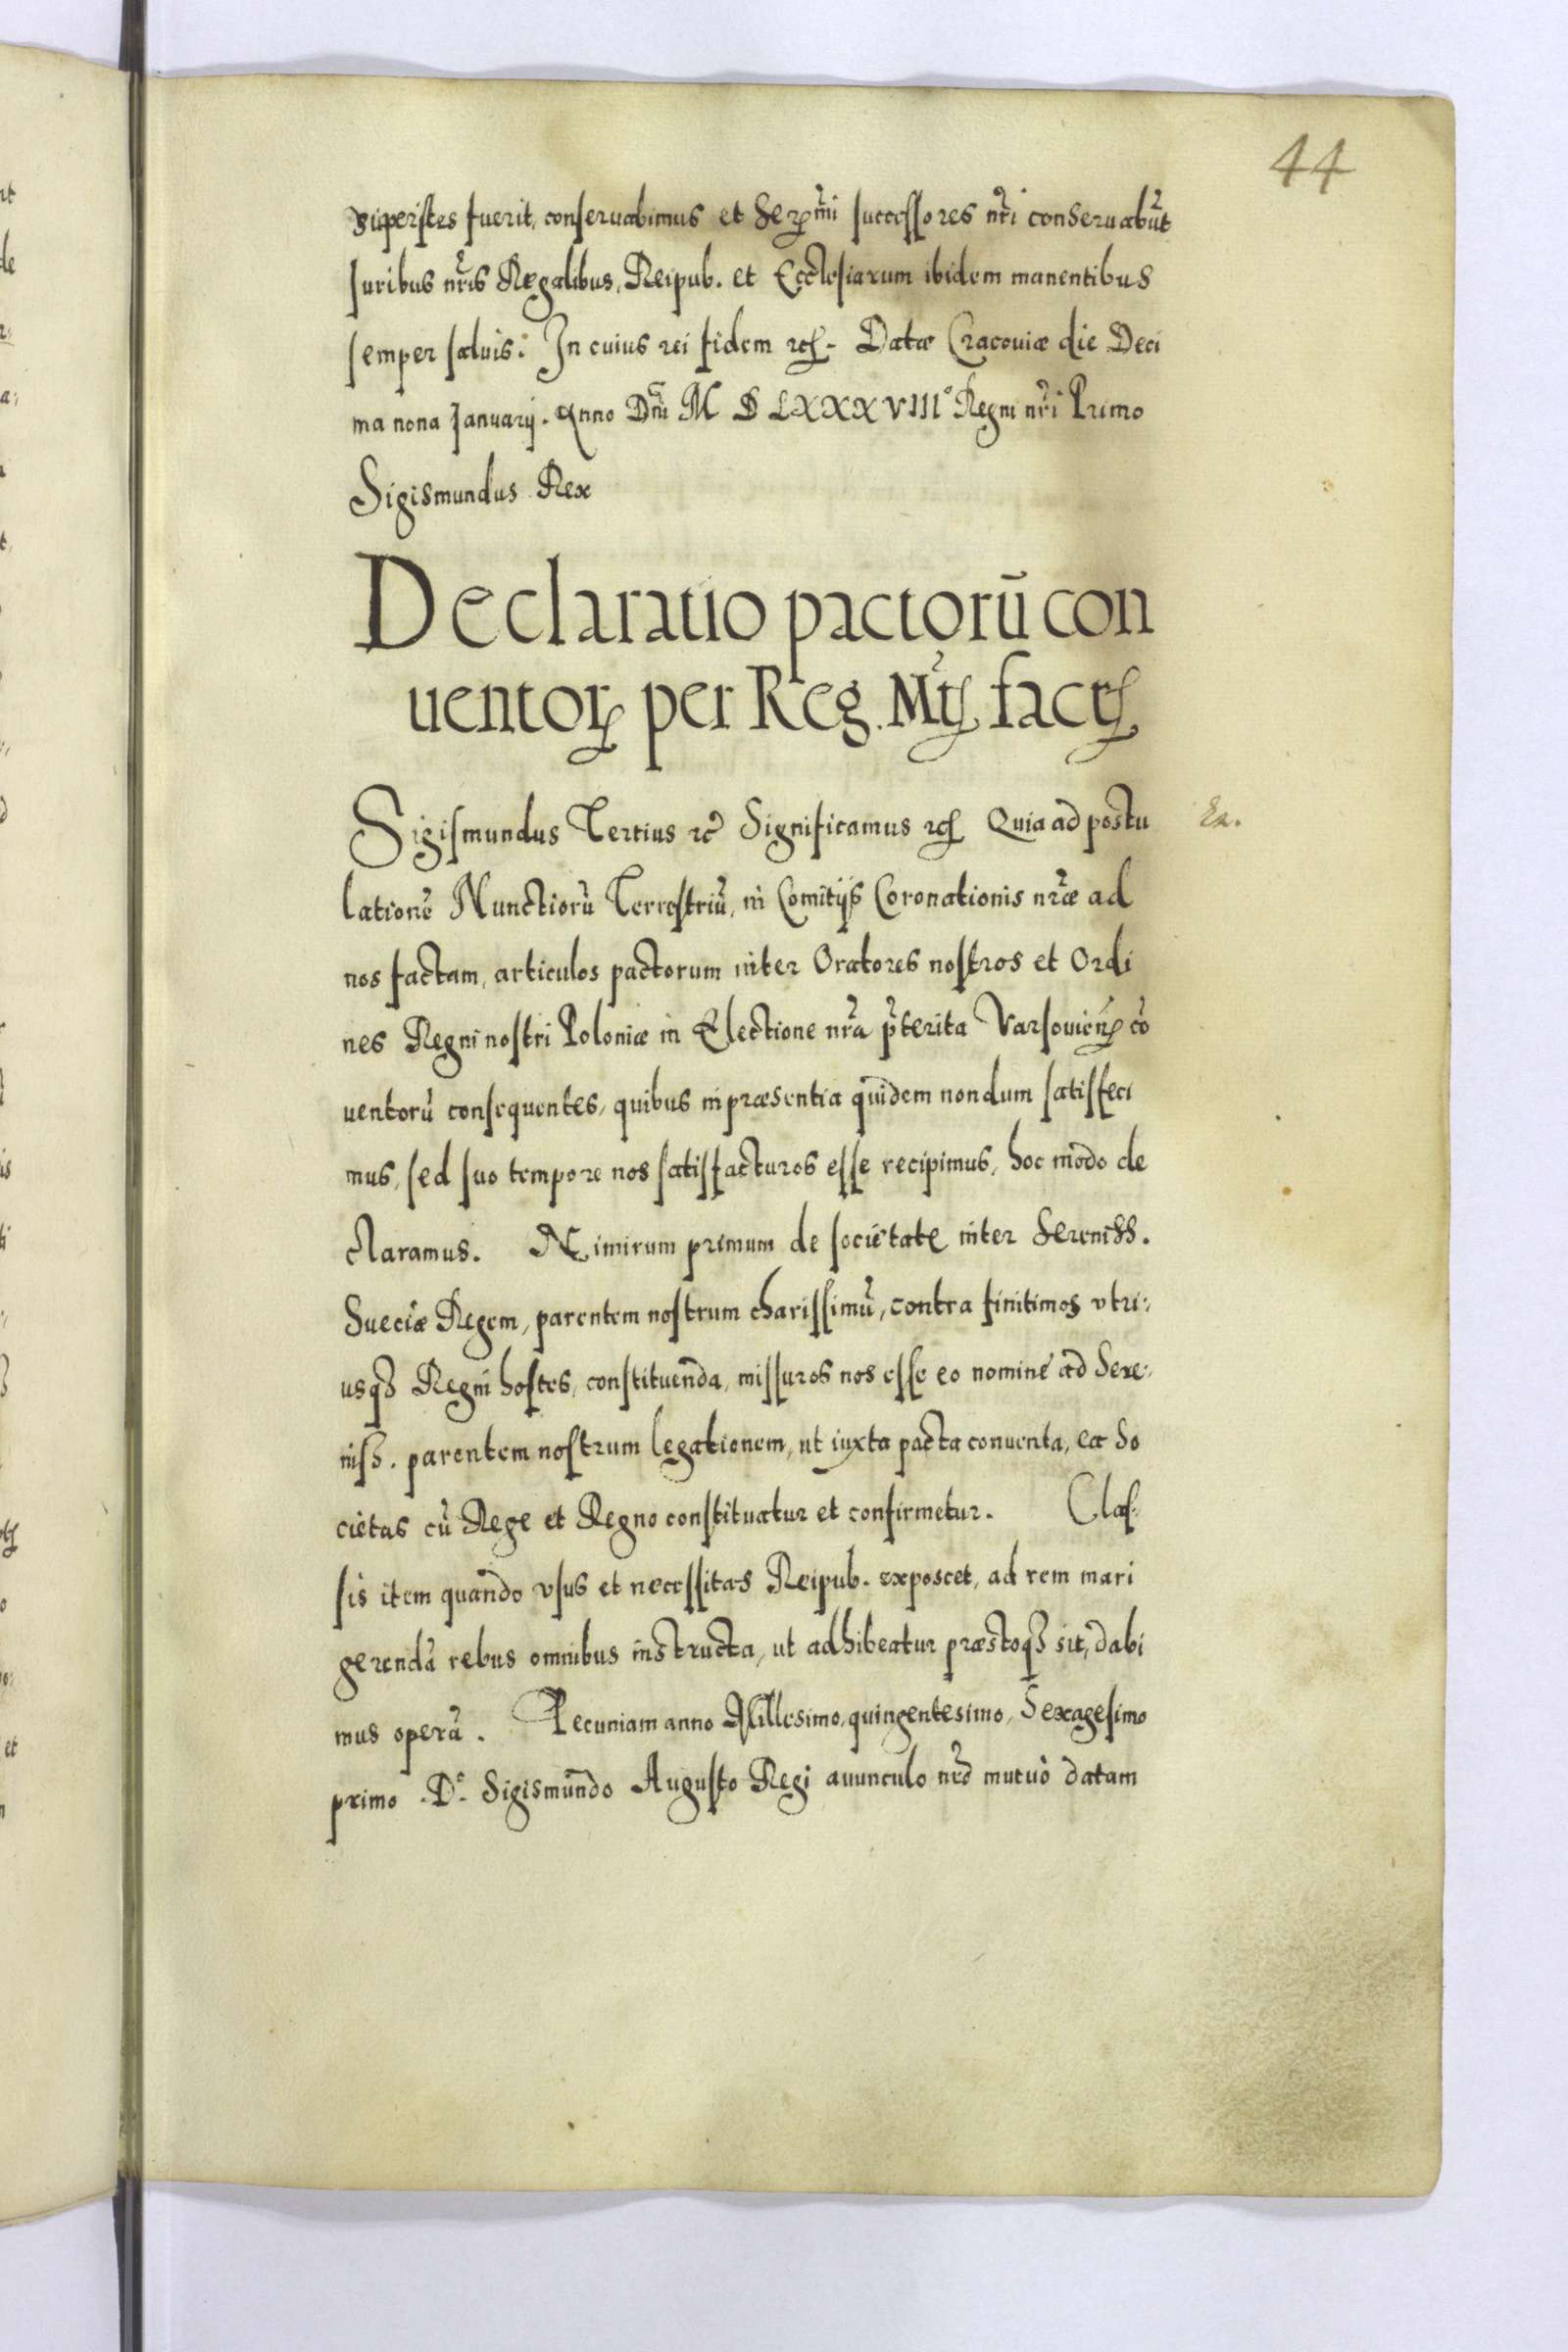 44
superstes fuerit, conseruabimus et Serẽmi successores nr̃i conseruabũt
Iuribus nr̃is Regalibus, Reipub. et Ecclesiarum ibidem manentibus
semper saluis. In cuius rei fidem etc̃. Datæ Cracouiæ die Deci
ma nona Ianuarij. Anno Dñi M D LXXXVIII° Regni nr̃i Primo
Sigismundus Rex
Declaratio pactorũ con
uentorꝝ per Reg. Mt̃ꝭ factꝭ
Sigismundus Tertius etc̃ Significamus etc̃ Quia ad postu
lationẽ Nunctiorũ Terrestriũ, in Comitijs Coronationis nr̃æ ad
nos factam, articulos pactorum inter Oratores nostros et Ordi
nes Regni nostri Poloniæ in Electione nr̃a p̃terita Varsouieñ cõ
uentorũ consequentes, quibus in præsentia quidem nondum satisfeci
mus, sed suo tempore nos satisfacturos esse recipimus, hoc modo de
claramus. Nimirum primum de societate inter Sereniss.
Sueciæ Regem, parentem nostrum charissimũ, contra finitimos vtri:
usqꝫ Regni hostes, constituenda, missuros nos esse eo nomine ad Sere:
niss. parentem nostrum legationem, ut iuxta pacta conuenta, ea so
cietas cũ Rege et Regno constituatur et confirmetur. Clas:
sis item quando vsus et necessitas Reipub. exposcet, ad rem mari
gerendã rebus omnibus instructa, ut adhibeatur præstoqꝫ sit, dabi
mus operã. Pecuniam anno Millesimo, quingentesimo, Sexagesimo
primo .D°. Sigismundo Augusto Regi auunculo nr̃o mutuò datam